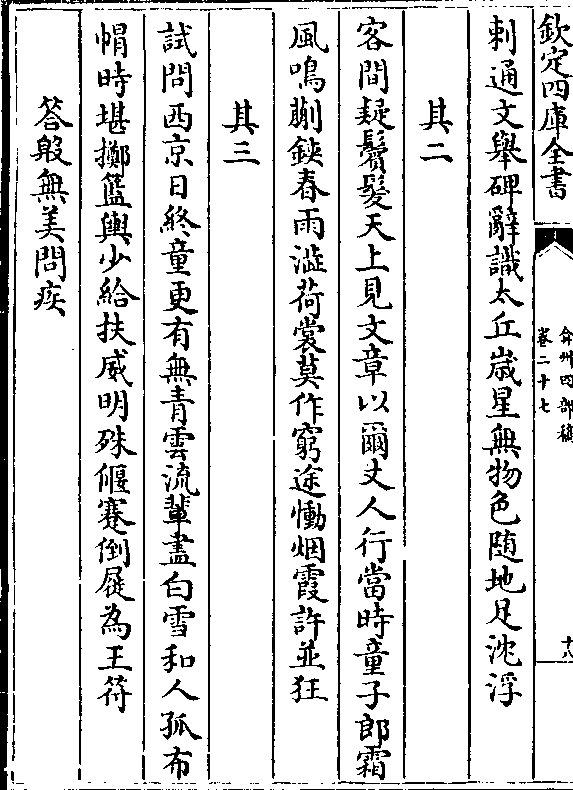 欽定四庫全書
弇州四部稿
卷二十七
十八
刺通文舉碑辭識太丘歳星無物色随地足沈浮
其二
客間疑鬢髮天上見文章以爾丈人行當時童子郎霜
風鳴蒯鋏春雨澁荷裳莫作窮途慟烟霞許並狂
其三
試問西京日終童更有無青雲流輩盡白雪和人孤布
㡌時堪擲籃輿少給扶威明殊偃蹇倒屣為王符
答殷無美問疾